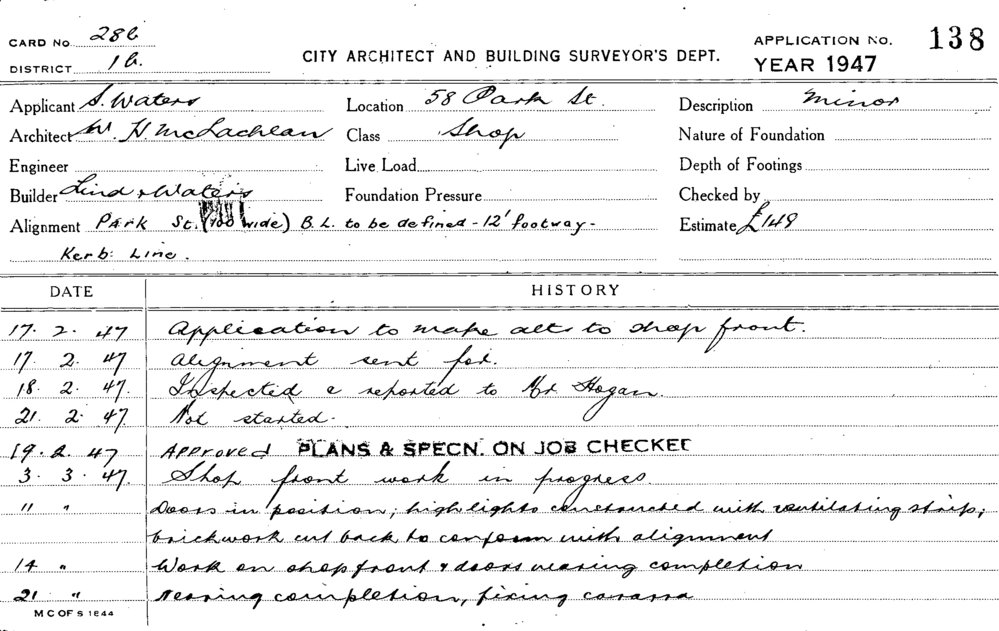 CARD No. 286
DISTRICT 16.
CITY ARCHITECT AND BUILDING SURVEYOR'S DEPT.
APPLICATION No. 138
YEAR 1947
Applicant S. Waters
Location 58 Park St.
Description Minor
Architect W. H. McLachlan
Class Shop
Nature of Foundation
Engineer
Live Load
Depth of Footings
Builder Lind & Waters
Foundation Pressure
Checked by
Alignment Park St. (100' wide) B.L. to be defined - 12' footway -
Estimate £149
Kerb: Line.
DATE HISTORY
17. 2. 47 Application to make alts to shop front.
17. 2. 47 Alignment sent for.
18. 2. 47. Inspected & reported to Mr Hogan.
21. 2. 47. Not started.
19. 2. 47 Approved PLANS & SPECN. ON JOB CHECKED
3. 3. 47. Shop front work in progress.
11 " Doors in position; highlights constructed with ventilating strip;
brickwork cut back to conform with alignment
14 " Work on shopfront & doors nearing completion
21 " Nearing completion, fixing carrara
M C OF S 1844